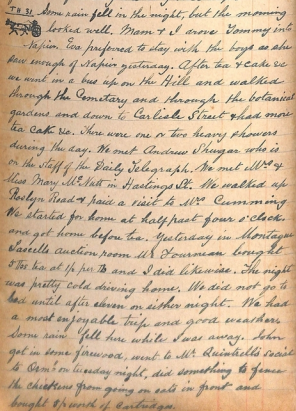 TH 31. Some rain fell in the night, but the morning
looked well. Mam & I drove Tommy into
Napier. Eva preferred to stay with the boys as she
saw enough of Napier yesterday. After tea & cake &c
we went in a bus up on the Hill and walked
through the Cemetary and through the botanical
gardens and down to Carlisle Street & had more
tea cake &c. There were one or two heavy showers
during the day. We met Andrew who is
on the Staff of the Daily Telegraph. We met Mrs &
Miss Mary in Hastings St. We walked up
Roslyn Road & paid a visit to Mrs Cumming
We started for home at half past four o'clock
and got home before tea. Yesterday in Montague
Lascelle auction room Mr bought
tea at 1/- per lb and I did likewise. The night
was pretty cold driving home. We did not go to
bed until after eleven on either night. We had
a most enjoyable trip and good weather.
Some rain fell here while I was away. John
got in some firewood, went to Mr social
to on tuesday night, did something to fence
the chickens from going on oats in front and
bought worth of cartridges.